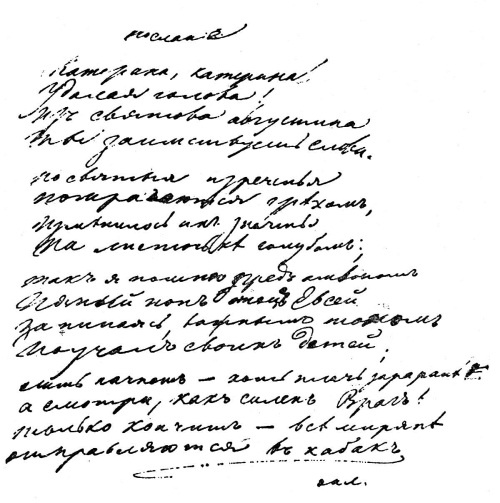 послание
Катерина, катерина!
Удалая голова!
Изъ святова августина
Ты заимствуешь слова.
но святыя изреченья
помрачаются грѣхомъ,
Измѣнилось ихъ значенье
На листочкѣ голубомъ;
такъ я помню предъ амвономъ
Пьяный попъ отецъ Евсей
запинаясь, важнымъ тономъ
Поучалъ своихъ детей;
лишь начнетъ – хоть плачь заранѣ
а смотри, какъ силенъ Врагъ!
только кончитъ – всѣ миряне
отправляются въ кабакъ